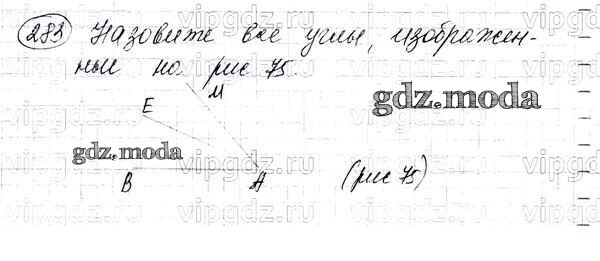 283 Назовите все углы, изображен-
ные на рис 75
М
E
gdz.moda
gdz.moda
B A (рис 75)
vipgdz.ru